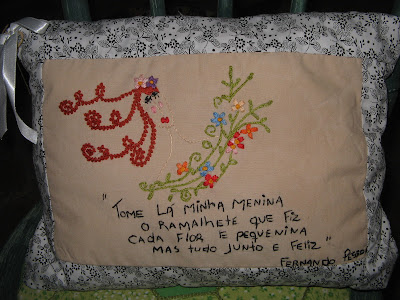 "TOME LÁ MINHA MENINA
O RAMALHETE QUE FIZ
CADA FLOR É PEQUENINA
MAS TUDO JUNTO É FELIZ"
FERNANDO PESSOA